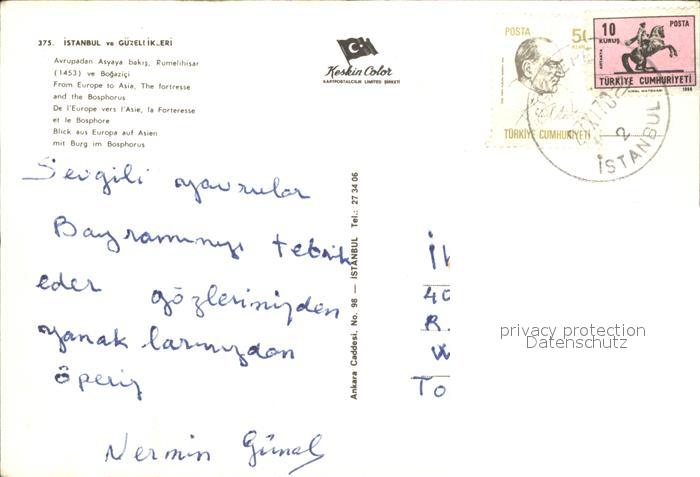 375. İSTANBUL ve GÜZELLİKLERİ
Avrupadan Asyaya bakış, Rumelihisar
(1453) ve Boğaziçi
From Europe to Asia, The fortresse
and the Bosphorus
De l'Europe vers l'Asie, la Forteresse
et le Bosphore
Blick aus Europa auf Asien
mit Burg im Bosphorus
Keskin Color
KARTPOSTALCILIK LIMITED ŞİRKETİ
POSTA 50
TÜRKİYE CUMHURİYETİ
10 KURUŞ POSTA
TÜRKİYE CUMHURİYETİ
1968
2
İSTANBUL
Sevgili yavrular
Bayramınızı tebrik
eder gözlerinizden
yanaklarınızdan
öperiz
Nermin Günal
Ankara Caddesi, No. 98 — İSTANBUL Tel.: 27 34 06
40
R.
W
To
privacy protection
Datenschutz